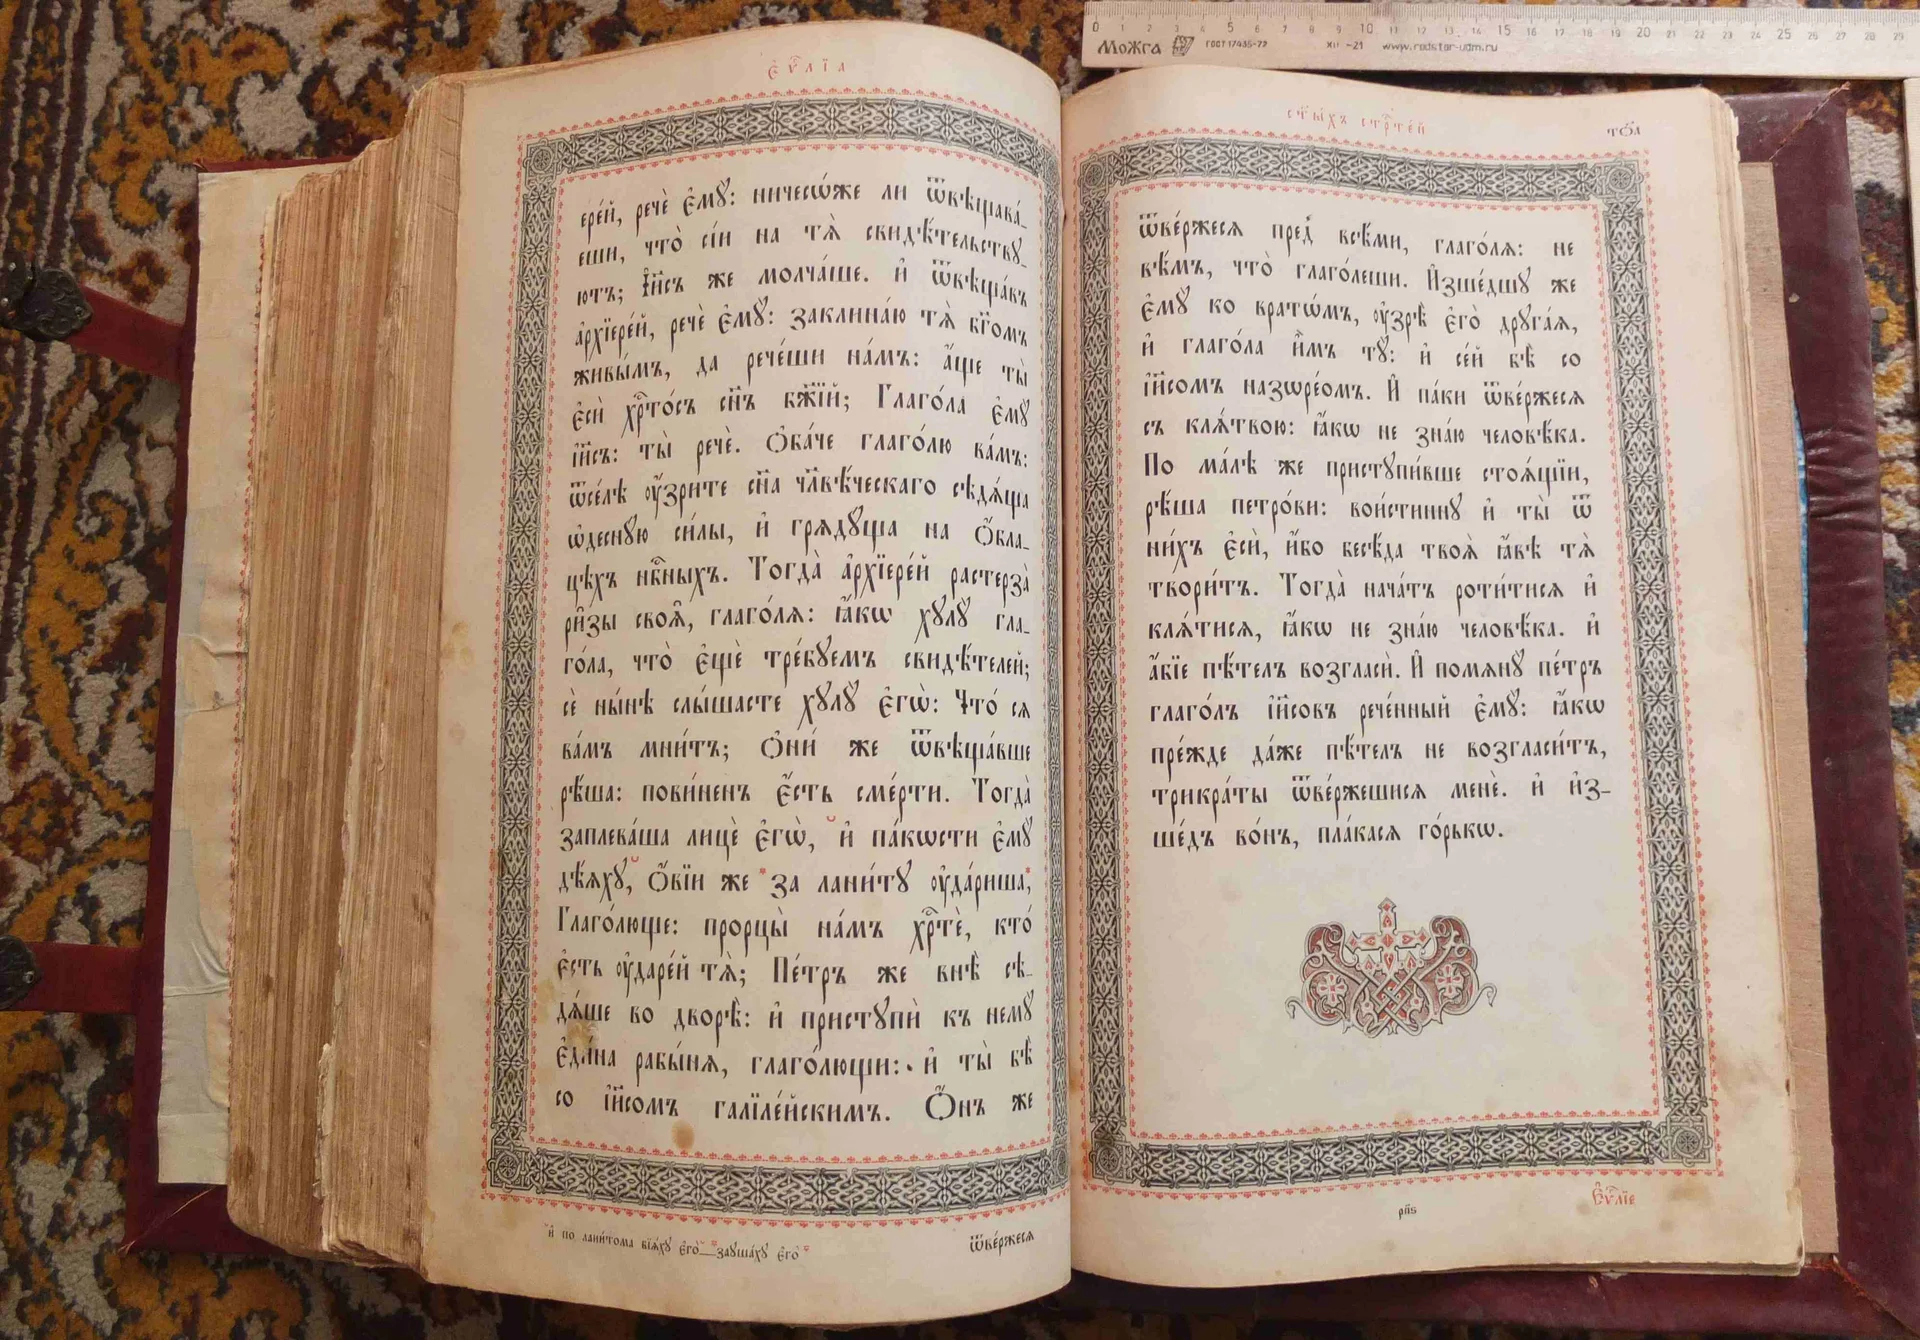 є҆ѵⷢ҇лїа
ере́й, речѐ є҆мꙋ̀: ничесѡ́же ли ѿвѣщава́_
еши, что̀ сі́и на тѧ̀ свидѣ́тельствꙋ_
ютъ; і҆и҃съ же молча́ше. и҆ ѿвѣща́въ
а҆рхїере́й, речѐ є҆мꙋ̀: заклина́ю тѧ̀ бг҃омъ
живы́мъ, да рече́ши на́мъ: а҆́ще ты̀
є҆сѝ хрⷭ҇то́съ сн҃ъ бж҃їй; Глаго́ла є҆мꙋ̀
і҆и҃съ: ты̀ речѐ. Ѻ҆ба́че глаго́лю ва́мъ:
ѿсе́лѣ ᲂу҆́зрите сн҃а чл҃вѣ́ческаго сѣдѧ́ща
ѡ҆деснꙋ́ю си́лы, и҆ грѧдꙋ́ща на ѻ҆́бла_
цѣхъ нбⷭ҇ныхъ. Тогда̀ а҆рхїере́й растерза̀
ри̑зы своѧ̑, глаго́лѧ: ꙗ҆́кѡ хꙋлꙋ̀ гла_
го́ла, что̀ є҆щѐ тре́бꙋемъ свидѣ́телей;
сѐ ны́нѣ слы́шасте хꙋлꙋ̀ є҆гѡ̀: Что́ сѧ
ва́мъ мни́тъ; Ѻ҆ни́ же ѿвѣща́вше
рѣ́ша: пови́ненъ є҆́сть сме́рти. Тогда̀
заплева́ша лицѐ є҆гѡ̀, и҆ па́кѡсти є҆мꙋ̀
дѣ́ѧхꙋ, Ѻ҆́вїи же *за лани́тꙋ ᲂу҆да́риша*,
Глаго́люще: прорцы̀ на́мъ хрⷭ҇тѐ, кто́
є҆сть ᲂу҆даре́й тѧ̀; Пе́тръ же внѣ̀ сѣ_
дѧ́ше во дворѣ̀: и҆ пристꙋпѝ къ немꙋ̀
є҆ди́на рабы́нѧ, глаго́лющи: и҆ ты̀ бѣ̀
со і҆и҃сомъ галїле́йскимъ. Ѻ҆́нъ же
*и҆ по лани́тома бїѧ́хꙋ є҆го̀ — заꙋша́хꙋ є҆го̀*
ѿве́ржесѧ
ст҃ы́хъ стрⷭ҇те́й
то҃а
ѿве́ржесѧ пред̾ всѣ́ми, глаго́лѧ: не
вѣ́мъ, что̀ глаго́леши. И҆зше́дшꙋ же
є҆мꙋ̀ ко вратѡ́мъ, ᲂу҆зрѣ̀ є҆го̀ дрꙋга́ѧ,
и҆ глаго́ла и҆̀мъ тꙋ̀: и҆ се́й бѣ̀ со
і҆и҃сомъ назѡре́омъ. И҆ па́ки ѿве́ржесѧ
съ клѧ́твою: ꙗ҆́кѡ не зна́ю человѣ́ка.
По ма́лѣ же пристꙋпи́вше стоѧ́щїи,
рѣ́ша петро́ви: вои́стиннꙋ и҆ ты̀ ѿ
ни́хъ є҆сѝ, и҆́бо бесѣ́да твоѧ̀ ꙗ҆́вѣ тѧ̀
твори́тъ. Тогда̀ нача́тъ роти́тисѧ и҆
клѧ́тисѧ, ꙗ҆́кѡ не зна́ю человѣ́ка. и҆
а҆́бїе пѣ́телъ возгласѝ. И҆ помѧнꙋ̀ пе́тръ
глаго́лъ і҆и҃совъ рече́нный є҆мꙋ̀: ꙗ҆́кѡ
пре́жде да́же пѣ́телъ не возгласи́тъ,
трикра́ты ѿве́ржешисѧ менѐ. и҆ и҆з_
ше́дъ во́нъ, пла́касѧ го́рькѡ.
рн҃ѕ
Є҆ѵⷢ҇лїе
0 1 2 3 4 5 6 7 8 9 10 11 12 13 14 15 16 17 18 19 20 21 22 23 24 25 26 27 28 29
Можга ГОСТ 17435-72 XII -21 www.redstar-udm.ru